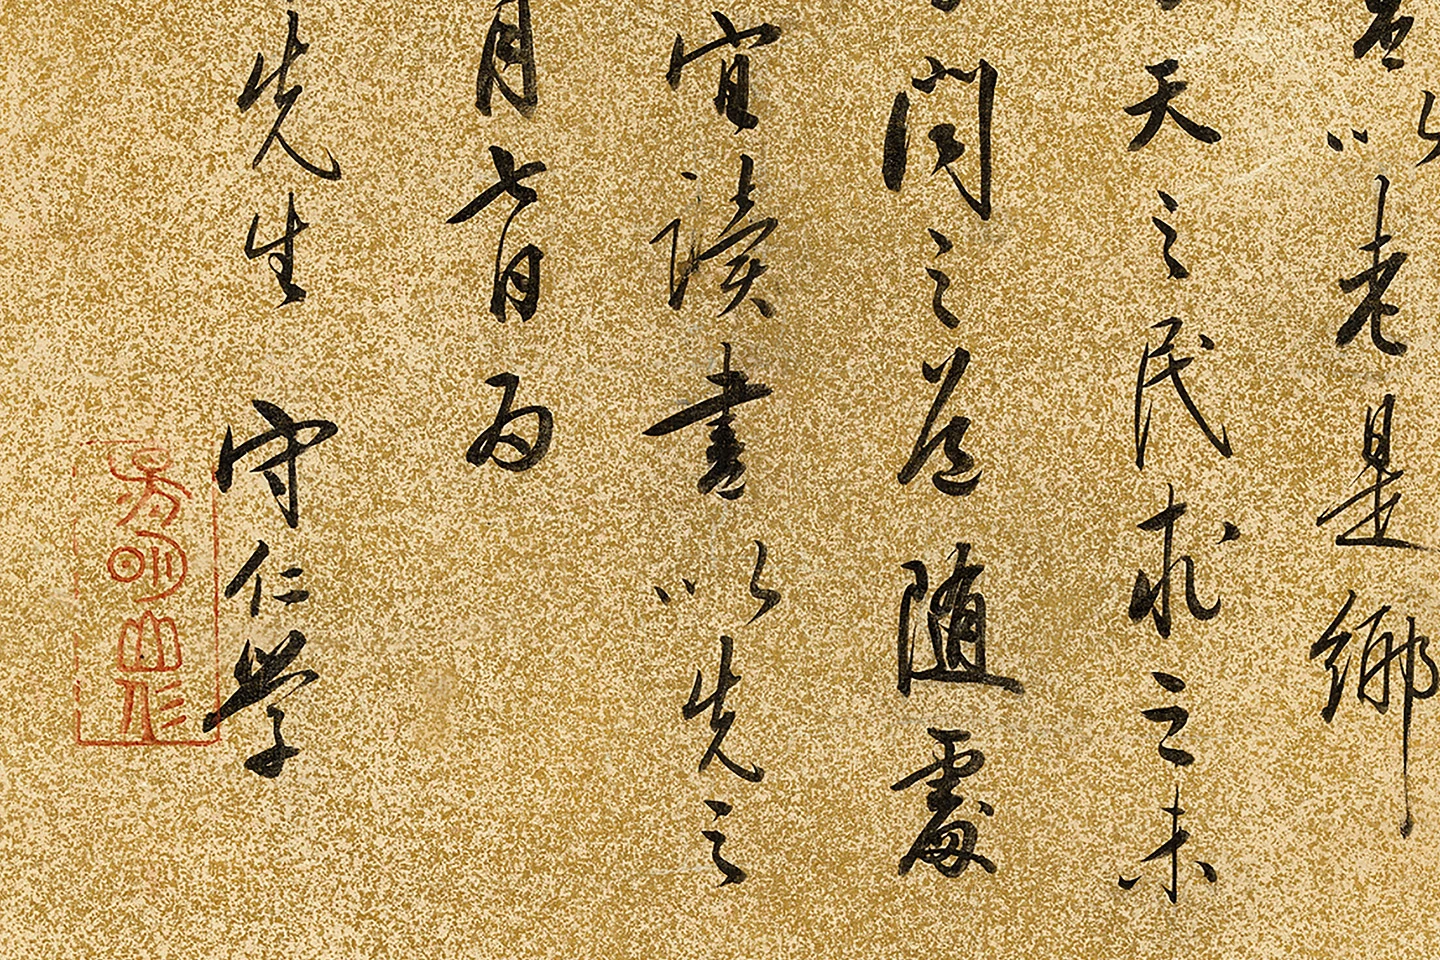 以老是鄉
天之民求之未
之道随處
宜讀書以先之
月七日
先生 守仁學
陽明山人